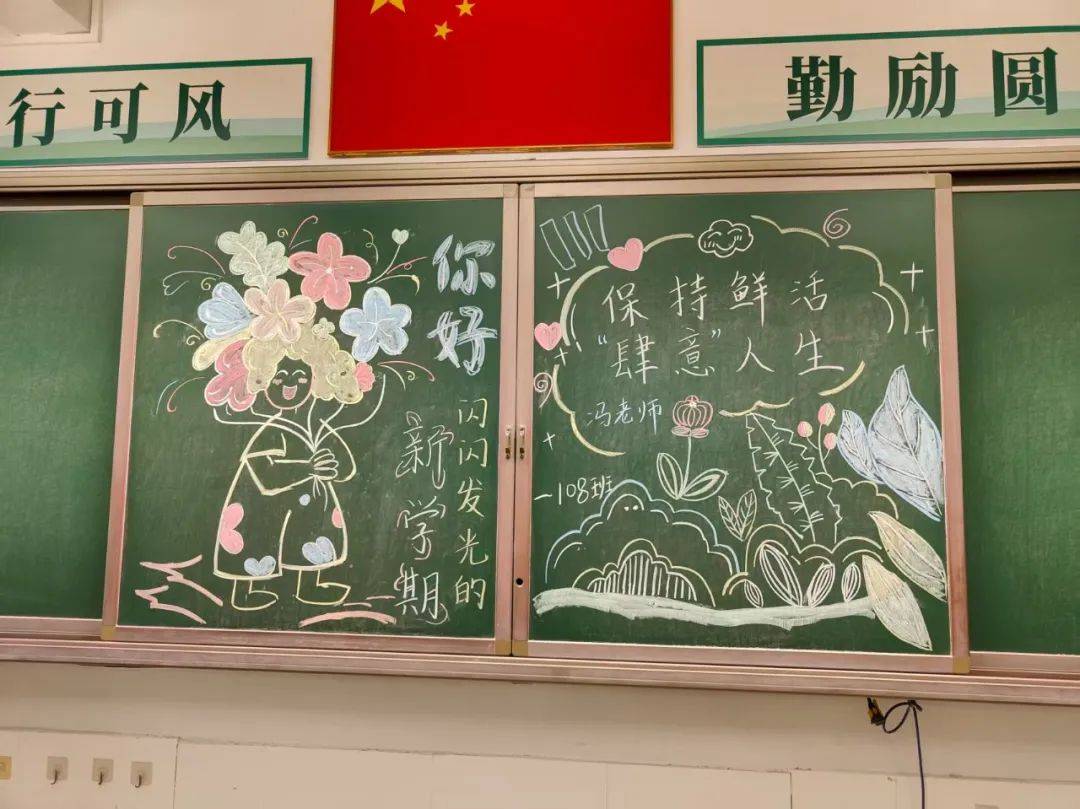 行可风
勤励圆
你好
闪闪发光的
新学期
保持鲜活
“肆意”人生
冯老师
-108班